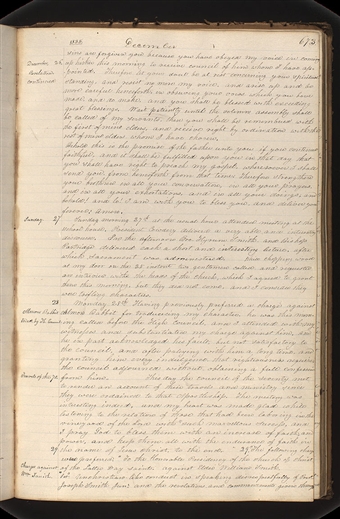 673
1835 December
December 26. up hither this morning to receive counsel of him whom I have ap-
Revelation pointed. Therefore let your soul be at rest concerning your spiritual
continued standing, and resist no more my voice, and arise up and be
more careful henceforth in observing your vows which you have
made and do make, and you shall be blessed with exceeding
great blessings. Wait patiently until the solemn assembly shall
be called of my servants, then you shall be remembered with
the first of mine elders, and receive right by ordination with the
rest of mine elders whom I have chosen.
Behold this is the promise of the Father unto you if you continue
faithful; and it shall be fulfilled upon you in that day that
you shall have right to preach my gospel, wheresoever I shall
send you from henceforth from that time. Therefore strengthen
your brethren in all your conversation, in all your prayers,
and in all your exhortations, and in all your doings; and
behold! and lo! I am with you to bless you, and deliver you
forever; Amen.
Sunday 27. Sunday morning 27th at the usual hour attended meeting at the
school house, President Cowdery delivered a very able and interesting
discourse. In the afternoon Bro. Hyrum Smith and Bishop
Partridge delivered each a short and interesting lecture, after
which sacrament was administered.
at my door on the 25 instant two gentlemen called and requested
an interview with the heads of the church, which I agreed to grant
them this morning, but they did not come, and I consider they
were trifling characters.
28. Monday 28th Having previously preferred a charge against
Almon Babbit Almon Babbit for traducing my character, he was this morn-
tried by the Council ing called before the High Council, and I attended with my
witnesses and substantiated my charge against him, and
he in part acknowledged his fault, but not satisfactory to
the council, and after parleying with him a long time, and
granting him every indulgence, that righteousness requires
the council adjourned without obtaining a full confession
from him. This day the council of the seventy met
to render an account of their travels, and ministry since
they were ordained to that apostleship. The meeting was
interesting indeed, and my heart was made glad while
listening to the relation of those that had been laboring in the
vineyard of the Lord with such marvelous success, and
I pray God to bless them with an increase of faith and
power, and keep them all with the endurance of faith in
29. the name of Jesus Christ to the end. 29. The following charges
were preferred "To the Honorable Presidency of the church of Christ
Charge against of the Latter Day Saints against Elder William Smith.
Wm Smith 1st Unchristian like conduct in speaking disrespectfully of President
Joseph Smith, Junr. and the revelations and commandments given through